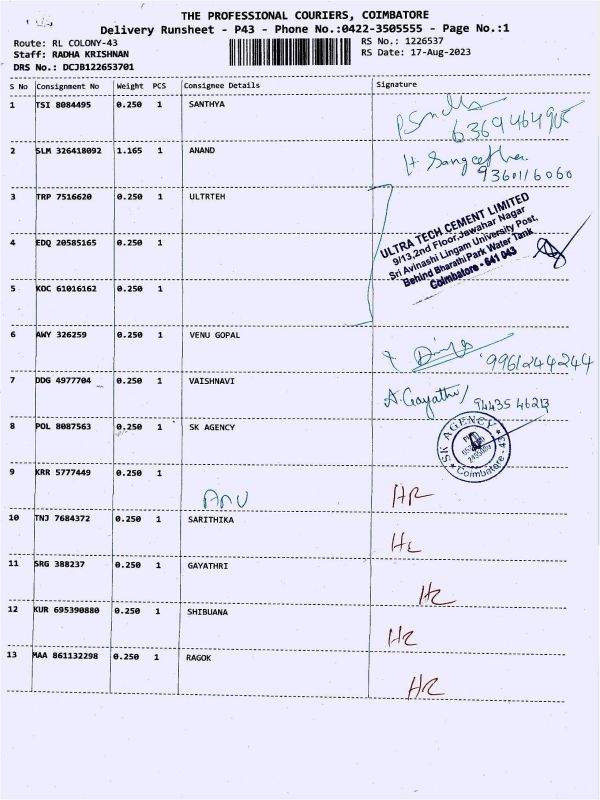 THE PROFESSIONAL COURIERS, COIMBATORE
Delivery Runsheet - P43 - Phone No.:0422-3505555 - Page No.:1
Route: RL COLONY-43
RS No.: 1226537
Staff: RADHA KRISHNAN
RS Date: 17-Aug-2023
DRS No.: DCJB122653701
S No Consignment No Weight PCS Consignee Details Signature
1 TSI 8084495 0.250 1 SANTHYA
2 SLM 326418092 1.165 1 ANAND
H Sangeetha
9360116060
3 TRP 7516620 0.250 1 ULTRTEH
ULTRA TECH CEMENT LIMITED
9/13,2nd Floor,Jawahar Nagar
Sri Avinashi Lingam University Post,
Behind Bharathi Park Water Tank
Coimbatore - 641 043
4 EDQ 20585165 0.250 1
5 KOC 61016162 0.250 1
6 AWY 326259 0.250 1 VENU GOPAL
9961244244
7 DDG 4977704 0.250 1 VAISHNAVI
A. Gayathri
94435 46213
8 POL 8087563 0.250 1 SK AGENCY
SK AGENCY
Coimbatore - 43
9 KRR 5777449 0.250 1
ANU
HR
10 TNJ 7684372 0.250 1 SARITHIKA
11 SRG 388237 0.250 1 GAYATHRI
HR
12 KUR 695390880 0.250 1 SHIBUANA
HR
13 MAA 861132298 0.250 1 RAGOK
HR